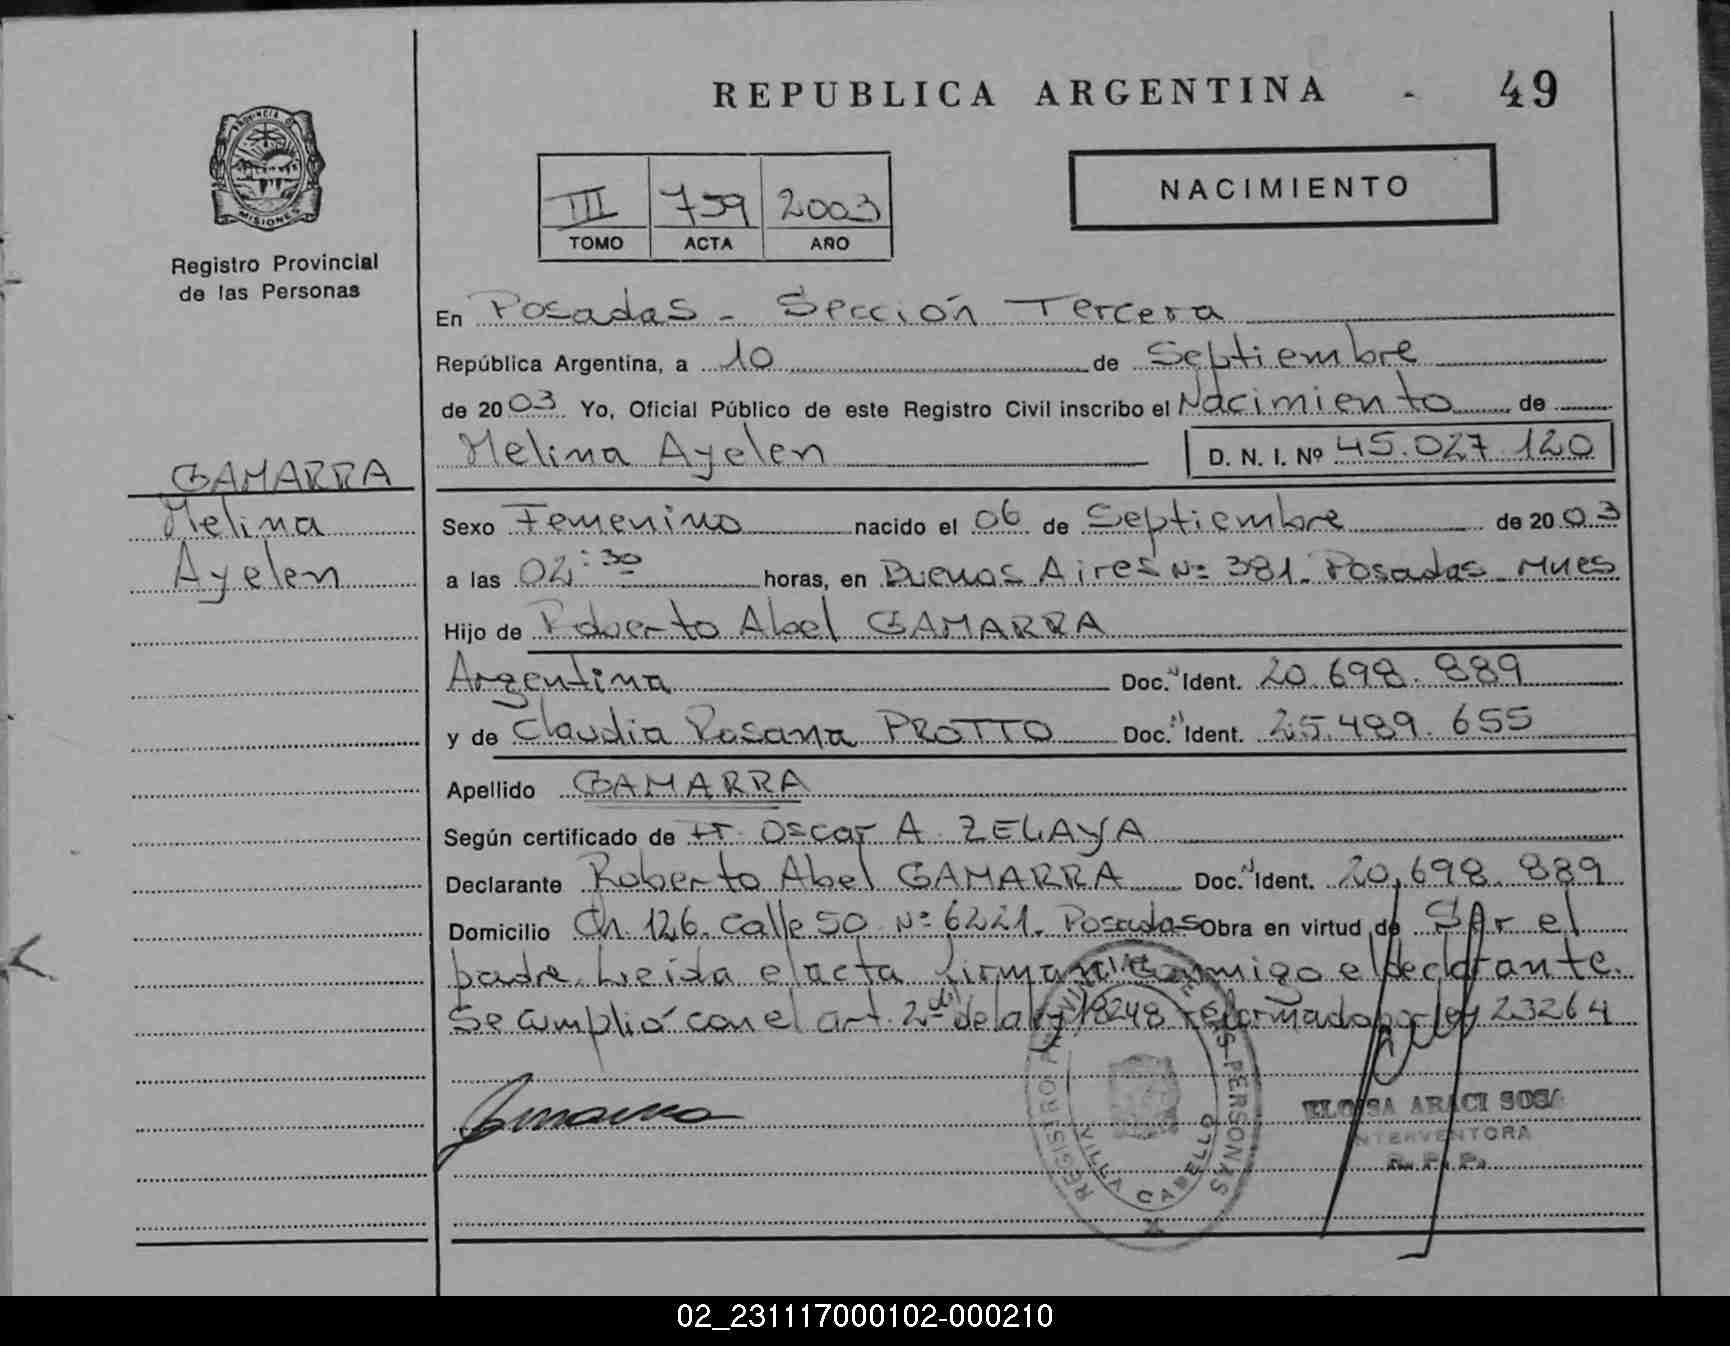 REPUBLICA ARGENTINA - 49
PROVINCIA DE MISIONES
Registro Provincial
de las Personas
III 759 2003
TOMO ACTA AÑO
NACIMIENTO
En Posadas - Sección Tercera
República Argentina, a 10 de Septiembre
de 2003 Yo, Oficial Público de este Registro Civil inscribo el Nacimiento de
Melina Ayelen D. N. I. Nº 45.027.120
GAMARRA
Melina
Ayelen
Sexo Femenino nacido el 06 de Septiembre de 2003
a las 02:30 horas, en Buenos Aires Nº 381. Posadas Mnes
Hijo de Roberto Abel GAMARRA
Argentina Doc. Ident. 20.698.889
y de Claudia Rosana PROTTO Doc. Ident. 25.489.655
Apellido GAMARRA
Según certificado de Oscar A. ZELAYA
Declarante Roberto Abel GAMARRA Doc. Ident. 20.698.889
Domicilio Ch 126. Calle 50 Nº 6221. Posadas Obra en virtud de SAr el
padre. Leida el acta firman conmigo el declarante.
Se cumplió con el art. 2º de la ley 18248 reformado por ley 23264
REGISTRO PERSONAS
VILLA CABELLO
ELOISA ARACI SOSA
INTERVENTORA
R. P. P.
02_231117000102-000210